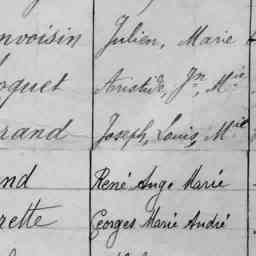 nvoisin Julien, Marie
oquet Aristide, Jn, Mie
rand Joseph, Louis, Mie
nd René Ange Marie
rette Georges Marie André